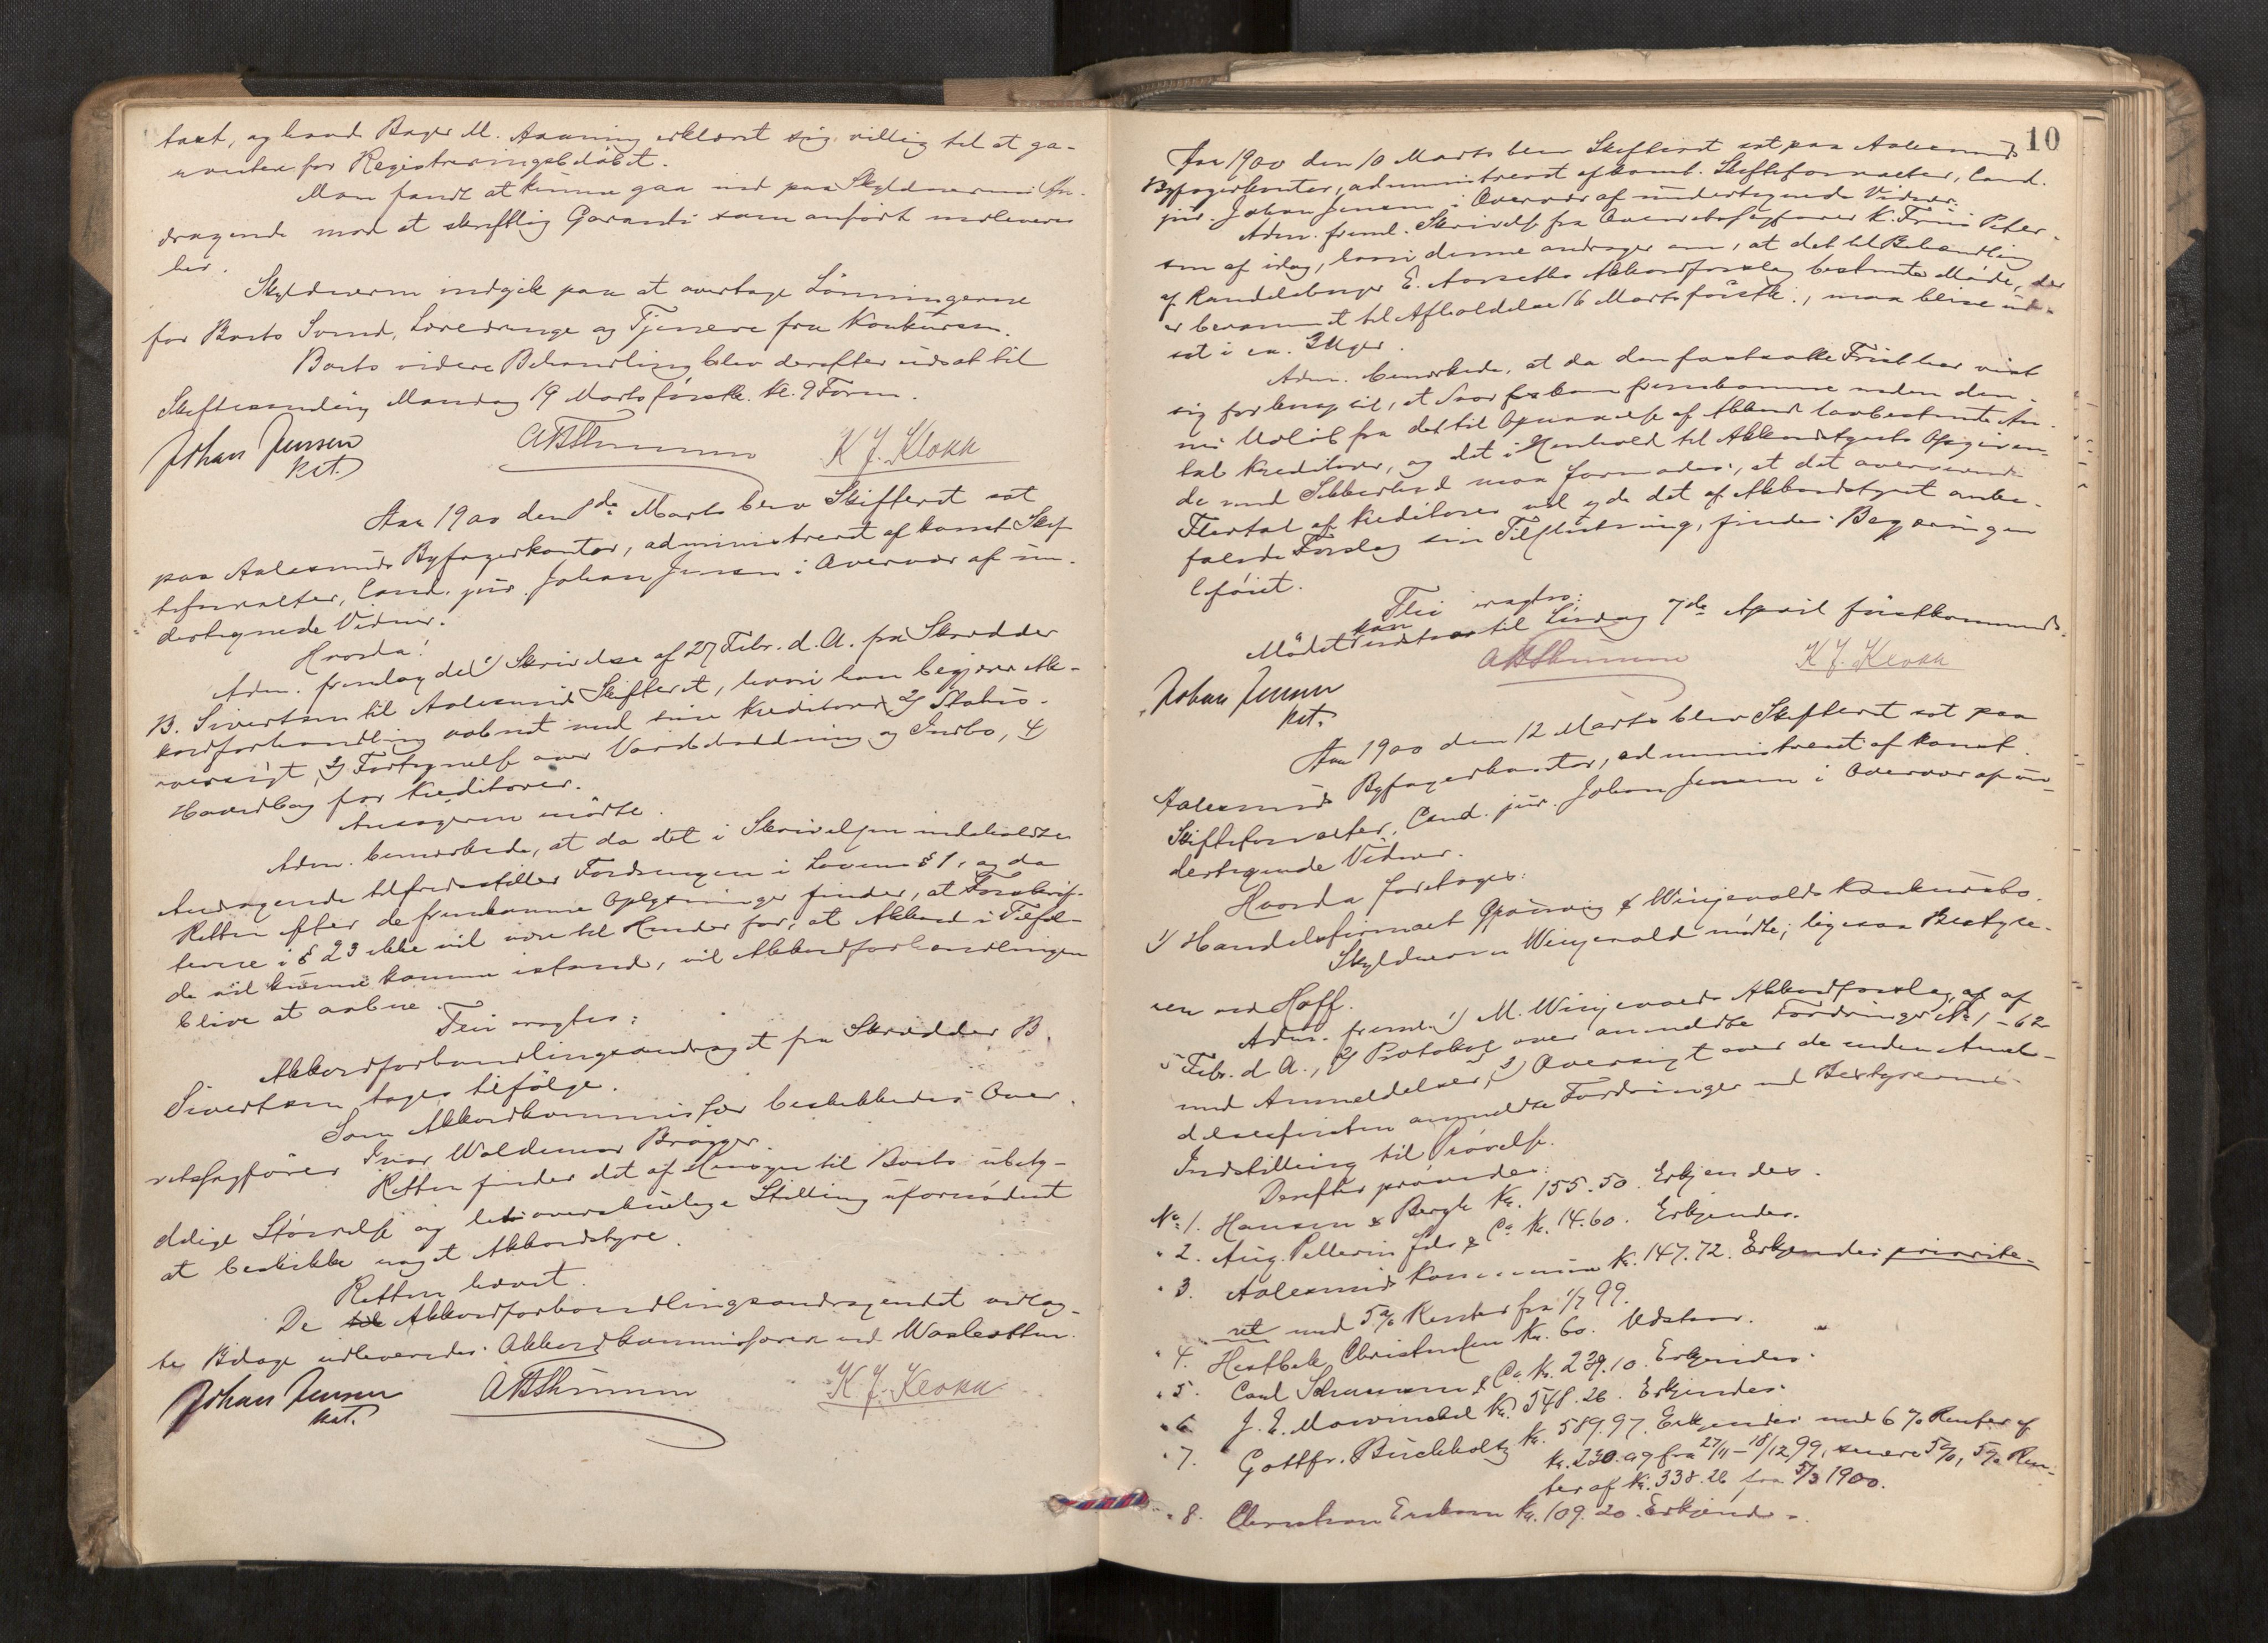 taxt, og havde Bager M. Aanning erklæret sig villig til at ga-
rantere for Registreringsbeløbet.
Man fandt at kunne gaa ind paa Skyldnerens An-
dragende mod at skriftlig Garanti som anført indleveres
her.
Skyldneren indgik paa at overtage Lønningerne
for Boets Svend, Læredrenge og Tjenere fra Konkursen.
Boets videre Behandling blev derefter udsat til
Skiftesamling Mandag 19 Marts førstk. Kl. 9 Form.
Johan Jensen
kst.
K J. Klokk
Aar 1900 den de Marts blev Skifteret sat
paa Aalesunds Byfogerkontor, administreret af konst Skif-
teforvalter, Cand. jur. Johan Jensen i Overvær af un-
dertegnede Vidner.
Hvorda:
Adm. fremlagde 1) Skrivelse af 27 Febr. d. A. fra Skrædder
B. Sivertsen til Aalesunds Skifteret, hvori han begjærer Ak-
kordforhandling aabnet med sine Kreditorer 2) Status-
oversigt, 3) Fortegnelse over Varebeholdning og Indbo, 4)
Hovedbog for Kreditorer.
Ansøgeren mødte.
Adm. bemærkede, at da det i Skrivelsen indeholdte
Andragende tilfredsstiller Fordringen i Lovens § 1, og da
Retten efter de fremkomne Oplysninger finder, at Forskrif-
terne i § 23 ikke vil være til Hinder for, at Akkord i Tilfæl-
de vil kunne komme istand, vil Akkordforhandlingen
blive at aabne.
Thi eragtes:
Akkordforhandlingsandraget fra Skrædder B.
Sivertsen tages tilfølge.
Som Akkordkommissær beskikkedes Over-
retssagfører Ivar Waldemar Brøgger.
Retten finder det af Hensyn til Boets ubety-
delige Størrelse og let overskuelige Stilling ufornødent
at beskikke noget Akkordstyre.
Retten hævet.
De Akkordforhandlingsandragendet vedlag-
te Bilage udleveredes Akkordkommissæren ved Waslesthun.
Johan Jensen
kst.
K. J. Klokk
10
Aar 1900 den 10 Marts blev Skifteret sat paa Aalesunds
Byfogerkontor, administreret af konst. Skifteforvalter, Cand.
jur. Johan Jensen i Overvær af undertegnede Vidner.
Adm. freml. Skrivelse fra Overretssagfører K. Friis Peter-
sen af idag, hvori denne andrager om, at det til Behandling
af Handelsborger E. Aarseths Akkordforslag bestemte Møde, der
er berammet til Afholdelse 16 Marts førstk., maa blive ud-
sat i ca. 3 Uger.
Adm. bemærkede, at da den fastsatte Frist har vist
sig for knap til, at Svar kan fremkomme inden den-
nes Udløb fra det til Opnaaelse af Akkord lovbestemte An-
tal Kreditorer, og det i Henhold til Akkordstyrets Opgiven-
de med Sikkerhed maa formodes, at det overveiende
Flertal af Kreditorer vil yde det af Akkordstyret anbe-
falede Forslag sin Tilslutning, findes Begjæringen
beføiet.
Thi eragtes:
Mødet kan udsættes til Lørdag 7de April førstkommende.
Johan Jensen
kst.
K J. Klokk
Aar 1900 den 12 Marts blev Skifteret sat paa
Aalesunds Byfogerkontor, administreret af konst.
Skifteforvalter, Cand. jur. Johan Jensen i Overvær af un-
dertegnede Vidner.
Hvorda foretoges:
1) Handelsfirmaet Grønvig & Wingevalds Konkursbo.
Skyldneren Wingevald mødte; ligesaa Bestyre-
ren ved Hoff.
Adm. freml. 1) M. Wingevalds Akkordforslag af
5 Febr. d. A., 2) Protokol over anmeldte Fordringer № 1-62
med Anmeldelser, 3) Oversigt over de inden Anmel-
delsesfristen anmeldte Fordringer med Bestyrerens
Indstilling til Prøvelse.
Derefter prøvedes:
№ 1. Hansen & Bergh Kr. 155.50. Erkjendes.
" 2. Aug. Pellerin fils & Co Kr. 14.60. Erkjendes.
" 3. Aalesunds Kommune Kr. 147.72. Erkjendes priorite-
ret med 5% Renter fra 1/7 99.
" 4. Hestbek Christensen Kr. 60. Udstaar.
" 5. Carl Schumann & Co Kr. 239.10. Erkjendes.
" 6. J. E. Mowinckel Kr. 548.26. Erkjendes.
" 7. Gottfr. Buchholtz Kr. 589.97. Erkjendes med 6% Renter af
Kr. 230.09 fra 27/11-18/12 99, senere 5%, 5% Ren-
ter af Kr. 338.26 fra 5/3 1900.
" 8. Christian Eriksen Kr. 109.20. Erkjendes.